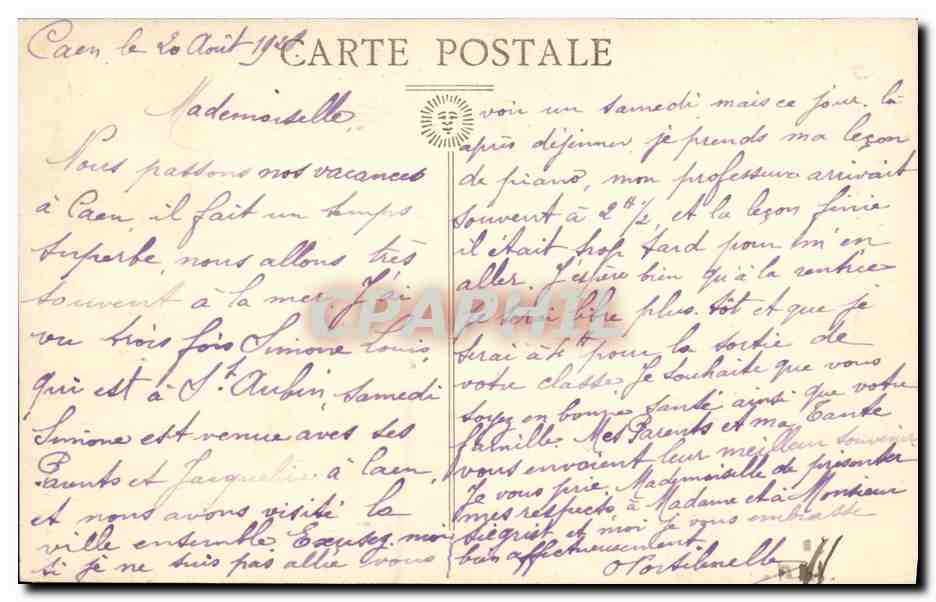 Caen le 20 Août
CARTE POSTALE
Mademoiselle,
Nous passons nos vacances
à Caen, il fait un temps
superbe, nous allons très
souvent à la mer. J'ai
vu trois fois Simone Louis,
qui est à St. Aubin, Samedi
Simone est venue avec ses
Parents et Jacqueline à Caen,
et nous avons visité la
ville ensemble. Excusez-moi
si je ne suis pas allée vous
voir un samedi, mais ce jour-là
après déjeuner, je prends ma leçon
de piano, mon professeur arrivait
souvent à 2h ½, et la leçon finie
il était trop tard pour m'en
aller. J'espère bien qu'à la rentrée
je serai libre plus tôt et que je
serai à 4h pour la sortie de
votre classe. Je souhaite que vous
soyez en bonne santé ainsi que votre
famille. Mes Parents et ma Tante
vous envoient leur meilleur souvenir
Je vous prie, Mademoiselle de présenter
mes respects à Madame et à Monsieur
Siegrist, et moi je vous embrasse
bien affectueusement
CPAPHIL